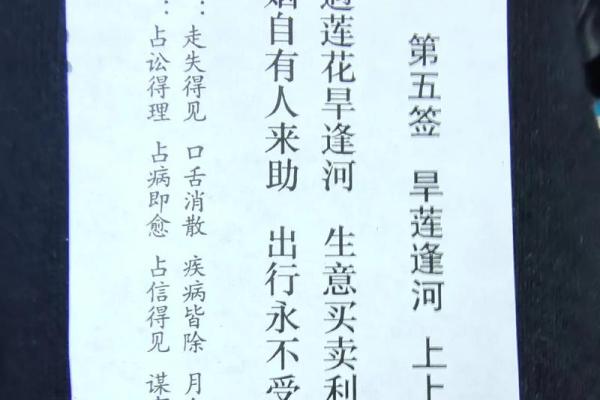 第五签 旱莲逢河 上上
遇莲花旱逢河 生意买卖利
烟自有人来助 出行永不受
：走失得见 口舌消散 疾病皆除 月
：占讼得理 占病即愈 占信得见 谋